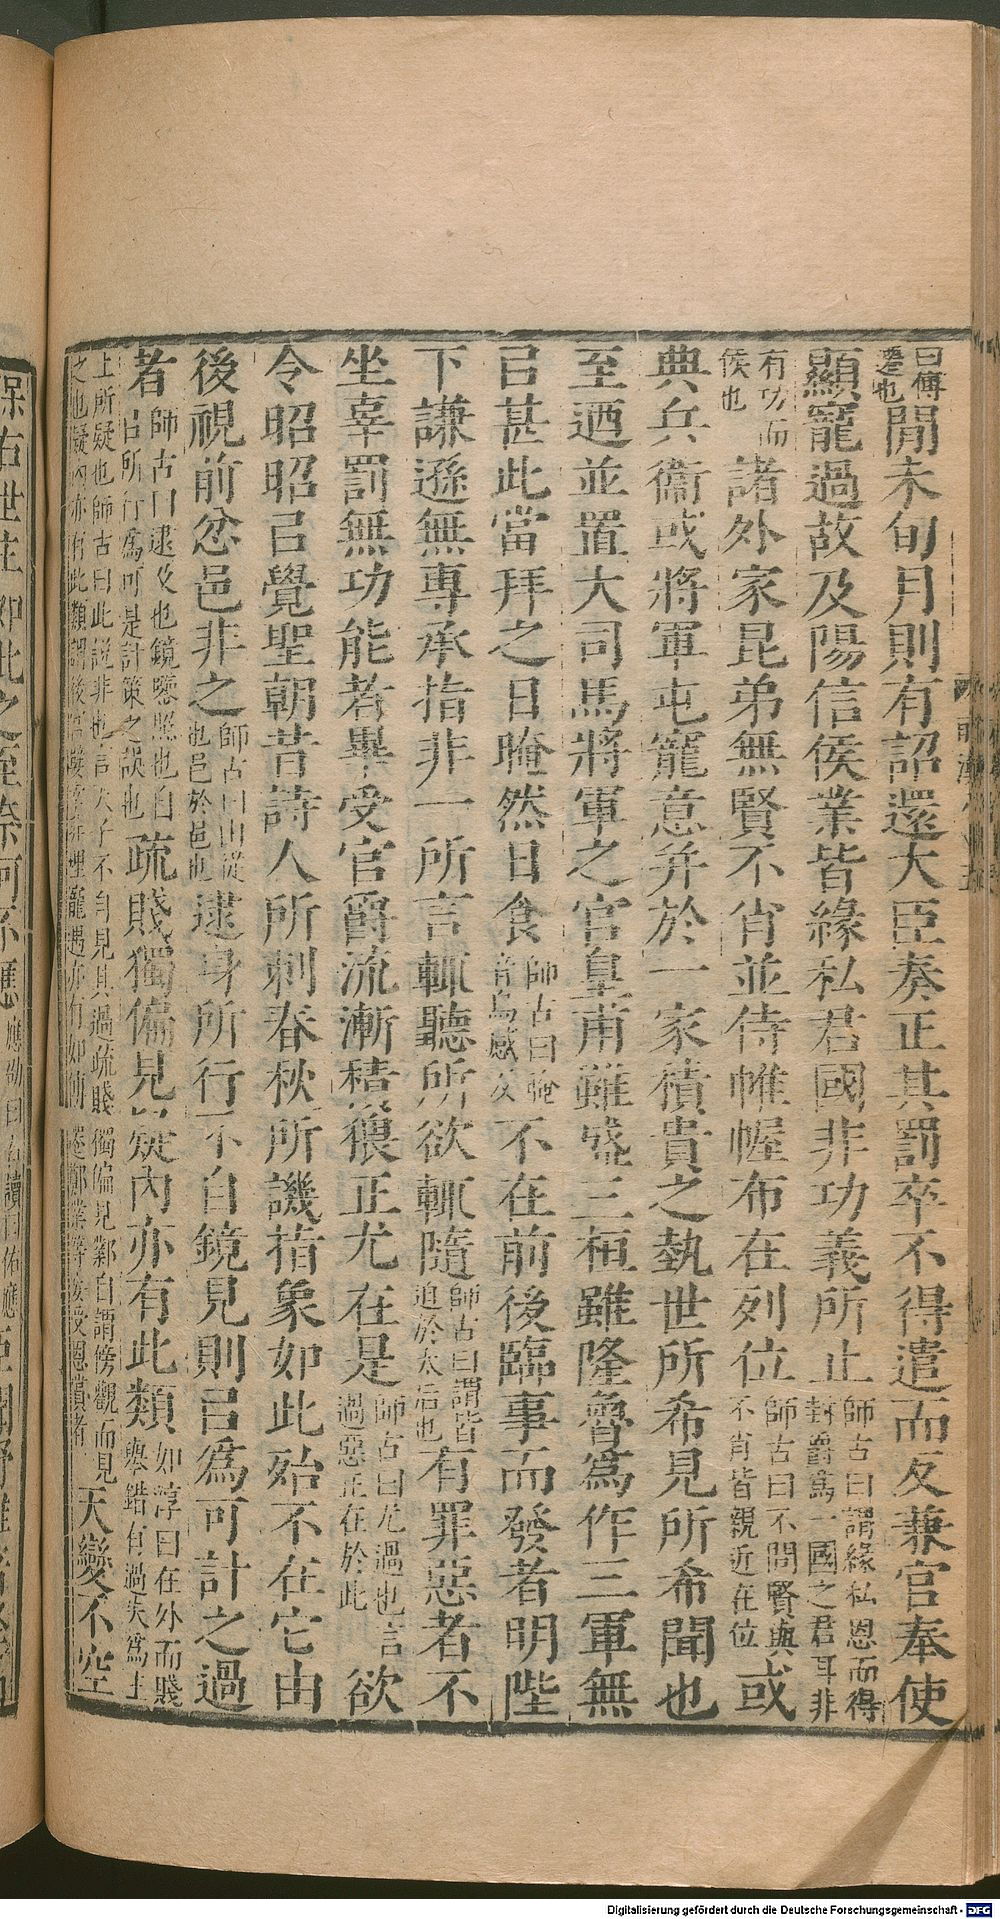 曰傅
遷也
閒未旬月則有詔還大臣奏正其罰卒不得遣而反兼官奉使
顯寵過故及陽信侯業皆緣私君國非功義所止
師古曰謂緣私恩而得
封爵爲一國之君耳非
有功而
侯也
諸外家昆弟無賢不肖並侍帷幄布在列位
師古曰不問賢與
不肖皆親近在位
或
典兵衞或將軍屯寵意并於一家積貴之埶世所希見所希聞也
至迺並置大司馬將軍之官皇甫雖盛三桓雖隆魯爲作三軍無
㠯甚此當拜之日晻然日食
師古曰晻
音烏感反
不在前後臨事而發者明陛
下謙遜無專承指非一所言輒聽所欲輒隨
師古曰謂皆
迫於太后也
有罪惡者不
坐辜罰無功能者畢受官爵流漸積猥正尤在是
師古曰尤過也言
過惡正在於此
欲
令昭昭㠯覺聖朝昔詩人所刺春秋所譏指象如此殆不在它由
後視前忿邑非之
師古曰由從
也邑於邑也
逮身所行不自鏡見則㠯爲可計之過
者
師古曰逮及也鏡鑒照也自
㠯所行爲可是計策之誤也
疏賤獨偏見疑內亦有此類
如淳曰在外而賤
舉錯有過失爲主
上所疑也師古曰此說非也言天子不自見其過疏賤獨偏見鄴自謂傍觀而見
之也疑內亦有此類謂後宮嬖
寵遇亦有如傅遷鄭業等妄授恩賞者
天變不空
保右世主如此之至奈何不應
應劭曰右讀曰佑應
臣聞野雞
Digitalisierung gefördert durch die Deutsche Forschungsgemeinschaft - DFG